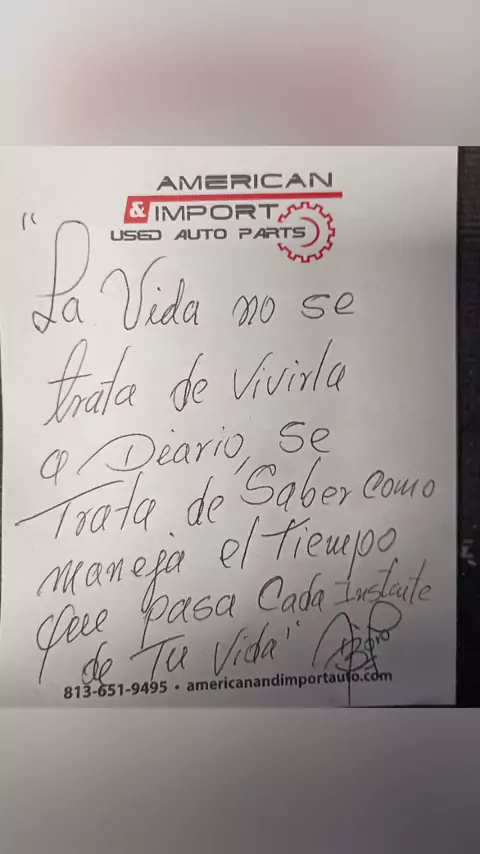 AMERICAN
& IMPORT
USED AUTO PARTS
"La Vida no se
trata de vivirla
a Diario, se
Trata de Saber como
maneja el tiempo
que pasa Cada Instante
de Tu Vida"
813-651-9495 • americanandimportauto.com